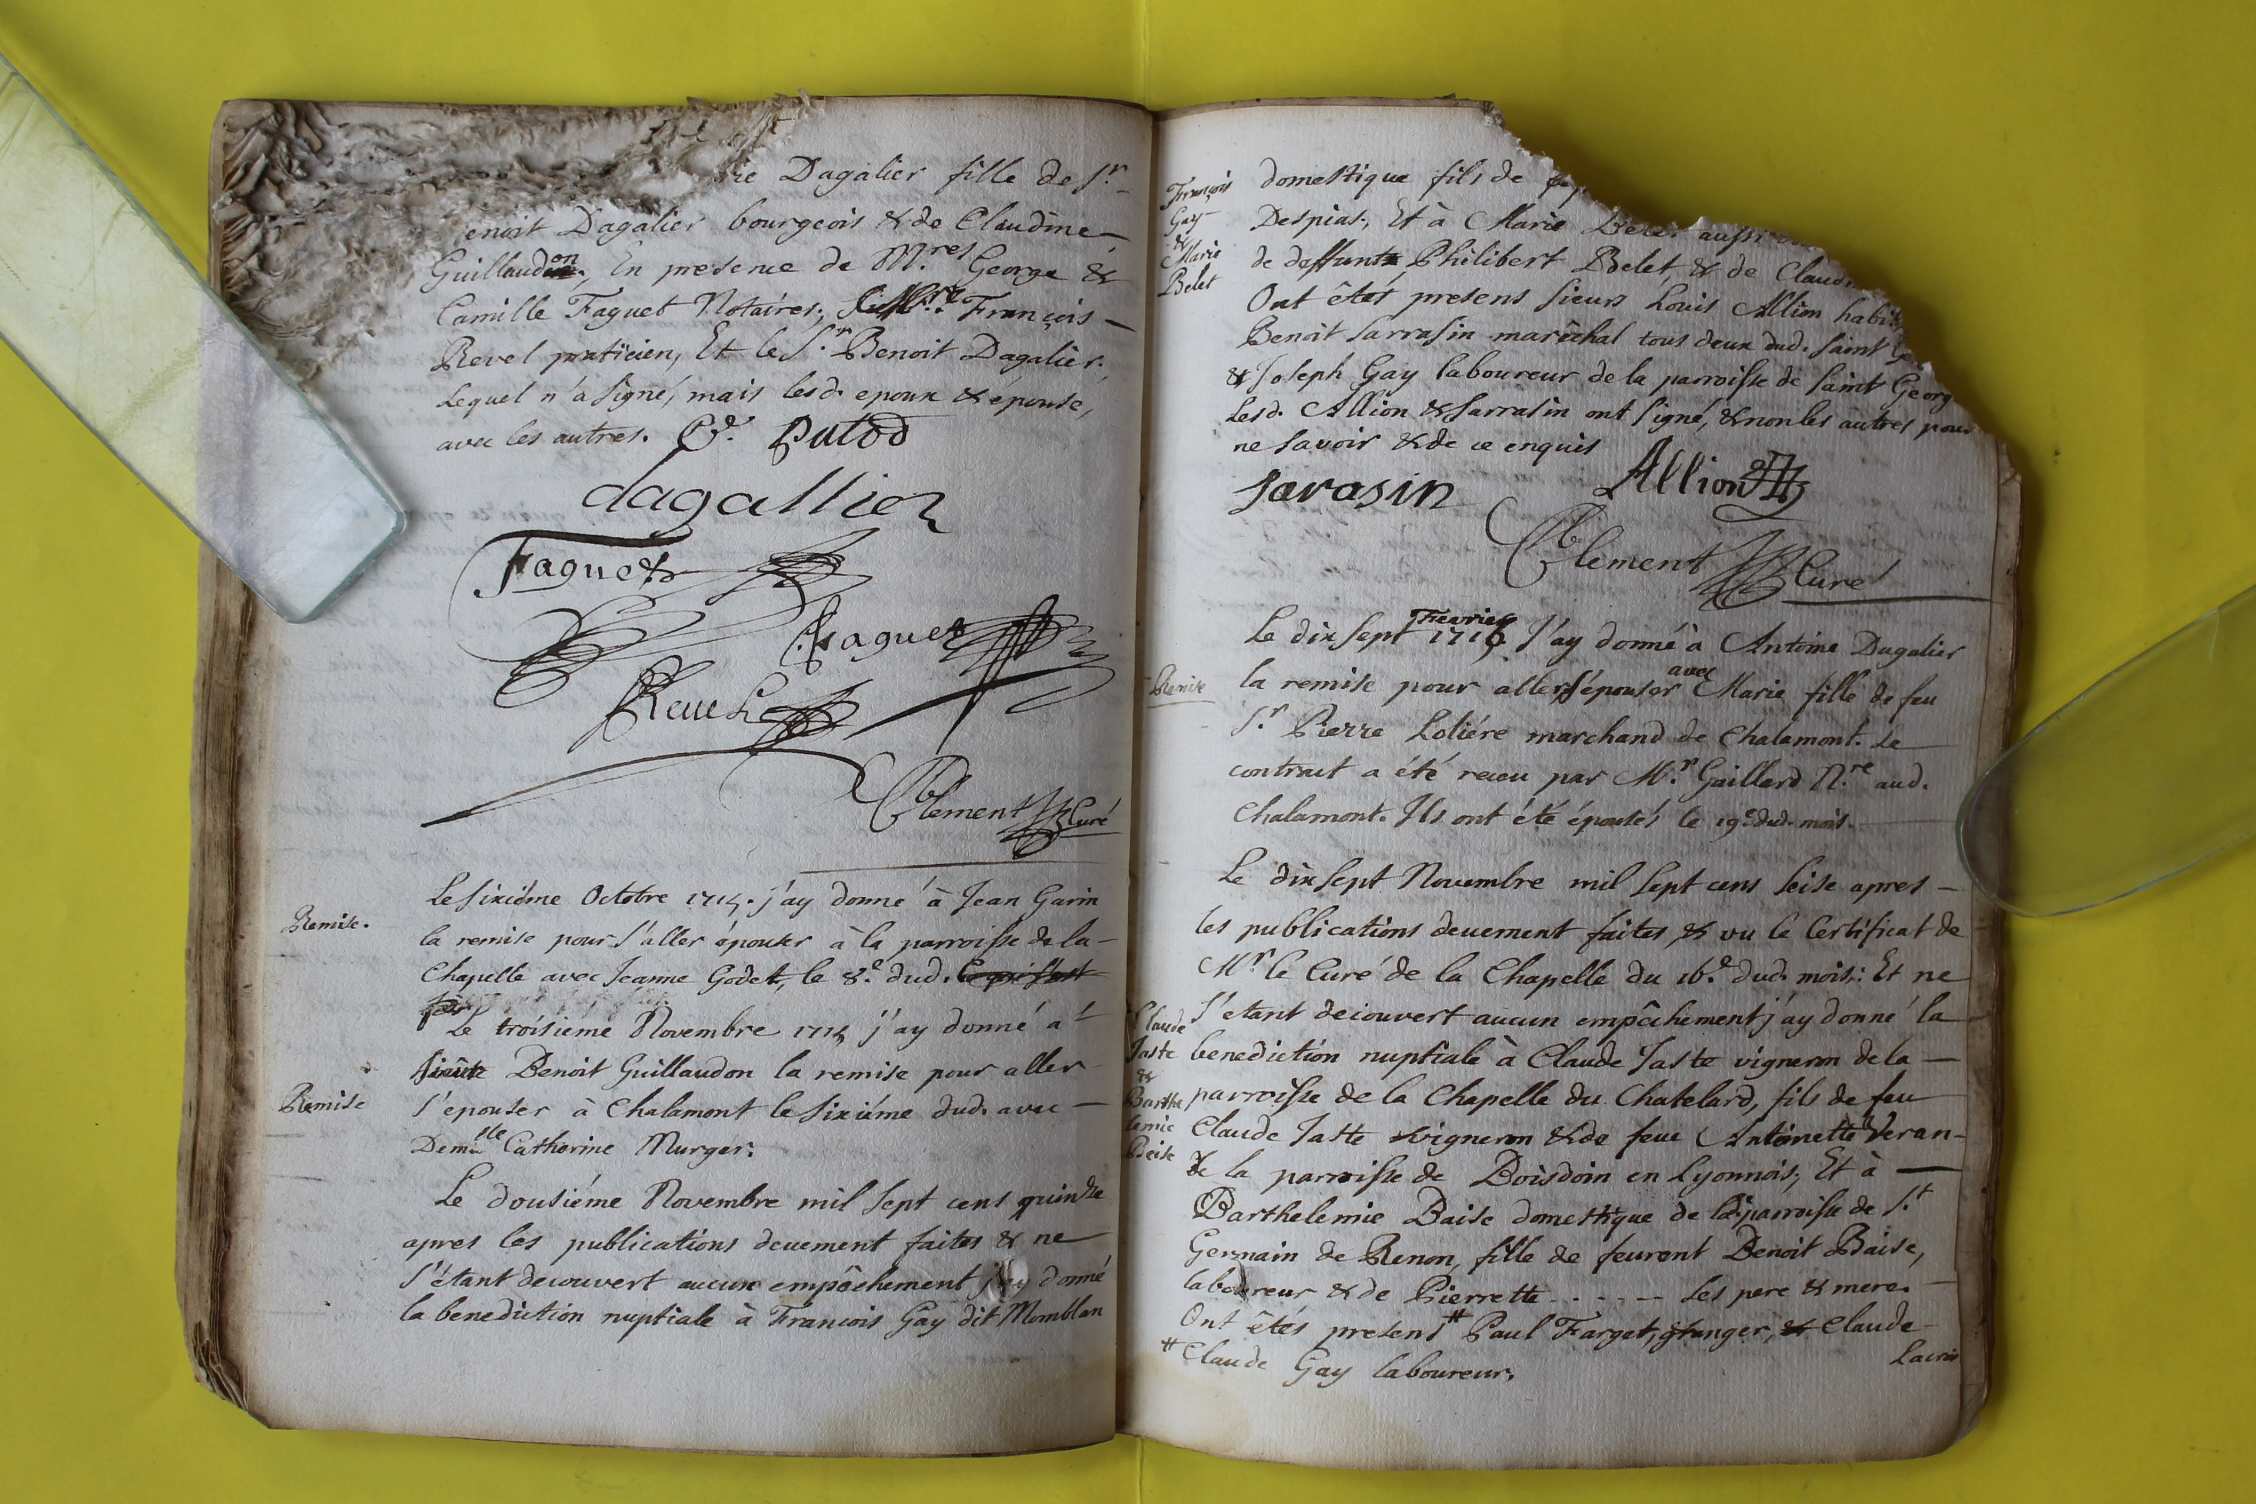 Dagalier fille de Sr
enoit Dagalier bourgeois & de Claudine
Guillaudon, En presence de M.res George &
Camille Faguet Notaires, François
Revel praticien, Et le S.r Benoit Dagalier.
Lequel n'a signé, mais lesd. epoux & épouse,
avec les autres. Putod
dagallier
Faguet
Faguet
Revel
Clement Curé
Remise.
Le sixiéme Octobre 1715. j'ay donné à Jean Garin
la remise pour s'aller épouser à la parroisse de la
Chapelle avec Jeanne Godet, le 8.e dud.
Remise
Le troisieme Novembre 1715 j'ay donné a
Benoit Guillaudon la remise pour aller
s'epouser à Chalamont le sixiéme dud. avec
Demlle Catherine Murger.
Le dousiéme Novembre mil sept cens quinze
apres les publications deuement faites & ne
s'étant decouvert aucun empêchement j'ay donné
la benediction nuptiale à François Gay dit Momblan
François
Gay
&
Marie
Belet
domestique fils de
Despias, Et à Marie Belet aussi
de deffunt Philibert Belet, & de Claud
Ont êtés presens sieurs Louis Allion habit
Benoit Sarrasin marêchal tous deux dud. saint
& Joseph Gay laboureur de la parroisse de saint Georg
Lesd. Allion & Sarrasin ont signé, & non les autres pour
ne savoir & de ce enquis
Sarasin Allion
Clement Curé
Remise
Le dix sept Fevrier 1716 J'ay donné à Antoine Dagalier
la remise pour aller s'épouser avec Marie fille de feu
S.r Pierre Loliére marchand de Chalamont. Le
contract a été receu par M.r Gaillard N.re aud.
Chalamont. Ils ont été épousés le 19.e dud. mois.
Claude
Jaste
&
Barthe
lemie
Beise
Le dix sept Novembre mil sept cens seise apres
les publications deuement faites & vu le Certificat de
M.r le Curé de la Chapelle du 16.e dud. mois: Et ne
s'etant decouvert aucun empêchement j'ay donné la
benediction nuptiale à Claude Jaste vigneron de la
parroisse de la Chapelle du Chatelard, fils de feu
Claude Jaste vigneron & de feue Antoinette Veran
de la parroisse de Boisdoin en Lyonnois, Et à
Barthelemie Baise domestique de la parroisse de S.t
Germain de Renon, fille de feurent Benoit Baise,
laboureur & de Pierrette - - - - - - ses pere & mere.
Ont êtés presens # Paul Farget, granger, Claude
Lacroi
# Claude Gay laboureur.